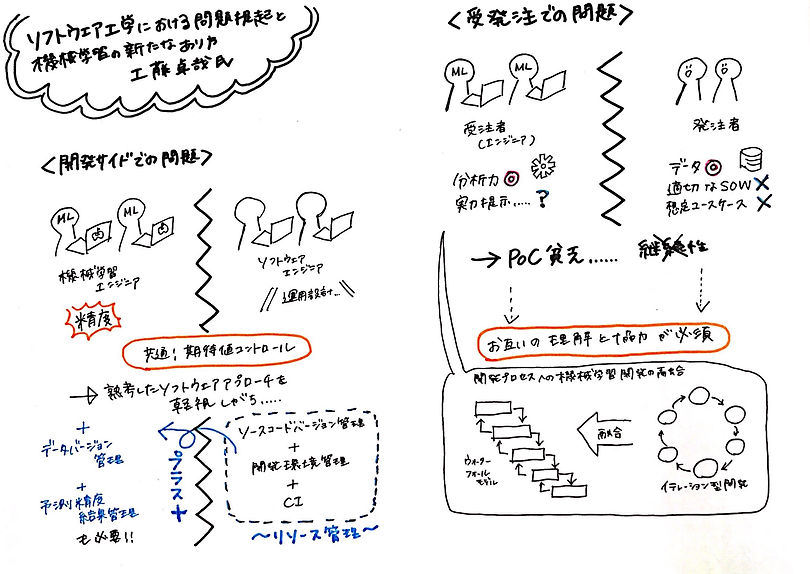 ソフトウェア工学における問題提起と
機械学習の新たなあり方
工藤卓哉氏
<開発サイドでの問題>
ML
ML
機械学習
エンジニア
ソフトウェア
エンジニア
精度
運用設計...
共通！期待値コントロール
→ 熟考したソフトウェアアプローチを
軽視しがち......
+
データバージョン
管理
+
予測精度
結果管理
も必要!!
プラス+
ソースコードバージョン管理
+
開発環境管理
+
CI
〜リソース管理〜
<受発注での問題>
ML
ML
受注者
(エンジニア)
発注者
分析力◎
実力提示.....?
データ◎
適切なSOW×
想定ユースケース×
→ PoC貧乏......
継続性
お互いの理解と協力が必須
開発プロセスへの機械学習開発の融合
ウォーター
フォール
モデル
融合
イテレーション型開発